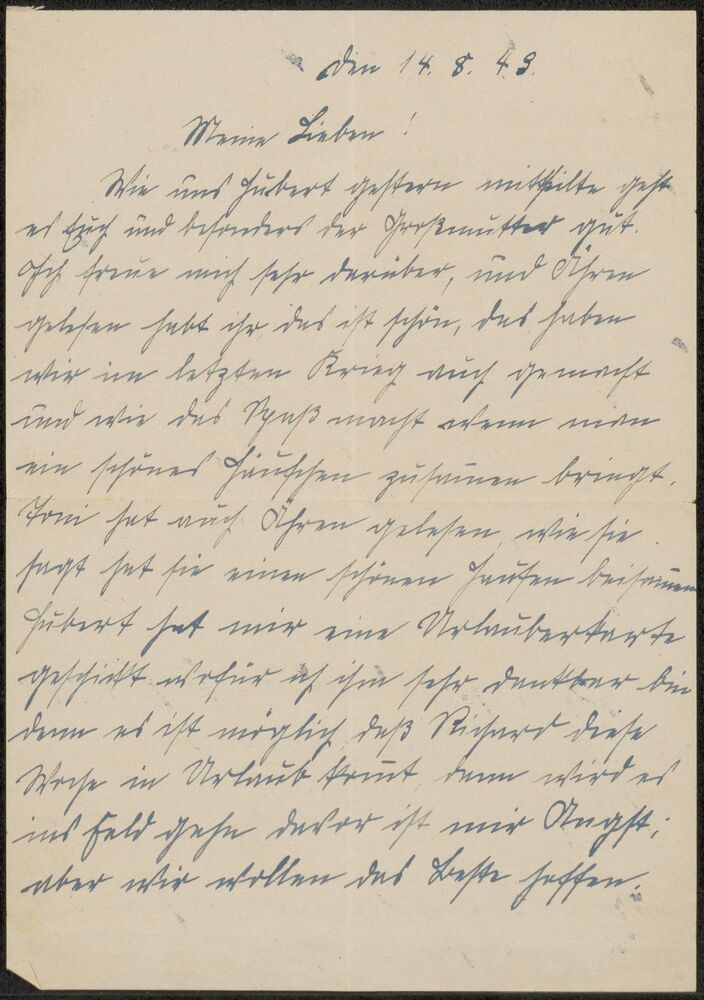 Den 14. 8. 43.
Meine Lieben!
Wie uns Hubert gestern mitteilte geht
es Euch und besonders der Großmutter gut.
Ich freue mich sehr darüber, und Ähren
gelesen habt ihr das ist schön, das haben
wir im letzten Krieg auch gemacht
und wie das Spaß macht wenn man
ein schönes Häufchen zusamen bringt.
Toni hat auch Ähren gelesen, wie sie
sagt hat sie einen schönen Haufen beisamen
Hubert hat mir eine Urlauberkarte
geschickt wofür ich ihm sehr dankbar bin
denn es ist möglich daß Richard diese
Woche in Urlaub komt, dann wird es
ins Feld gehn davor ist mir Angst;
aber wir wollen das Beste hoffen.